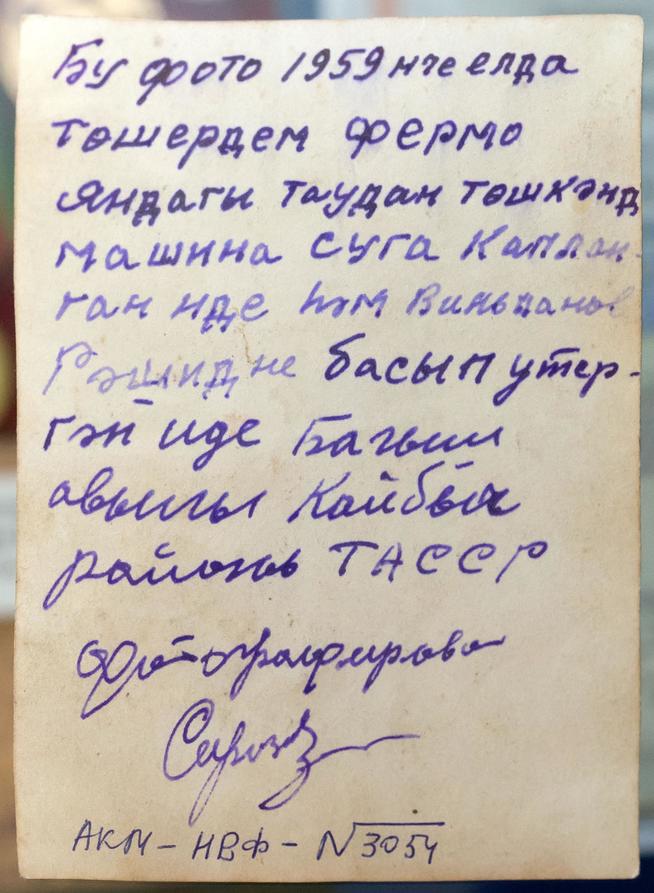 Бу фото 1959 нче елда
төшердем фермо
яндагы таудан төшкәнд
машина суга каплан-
ган иде һәм Вильданов
Рәшидне басып утер-
гән иде Багыш
авылы Кайбыч
районы ТАССР
Фотографировал
АКМ – НВФ – №3054